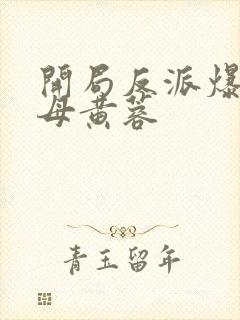 開局反派爆
母黃蓉
青玉留年